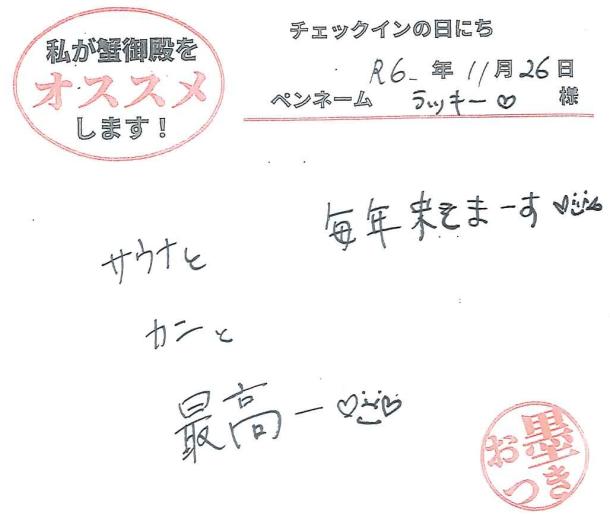 私が蟹御殿を
オススメ
します！
チェックインの日にち
R6年11月26日
ペンネーム ラッキー♡ 様
毎年来てまーす♡
サウナと
カニと
最高ー♡♡
お墨
つき